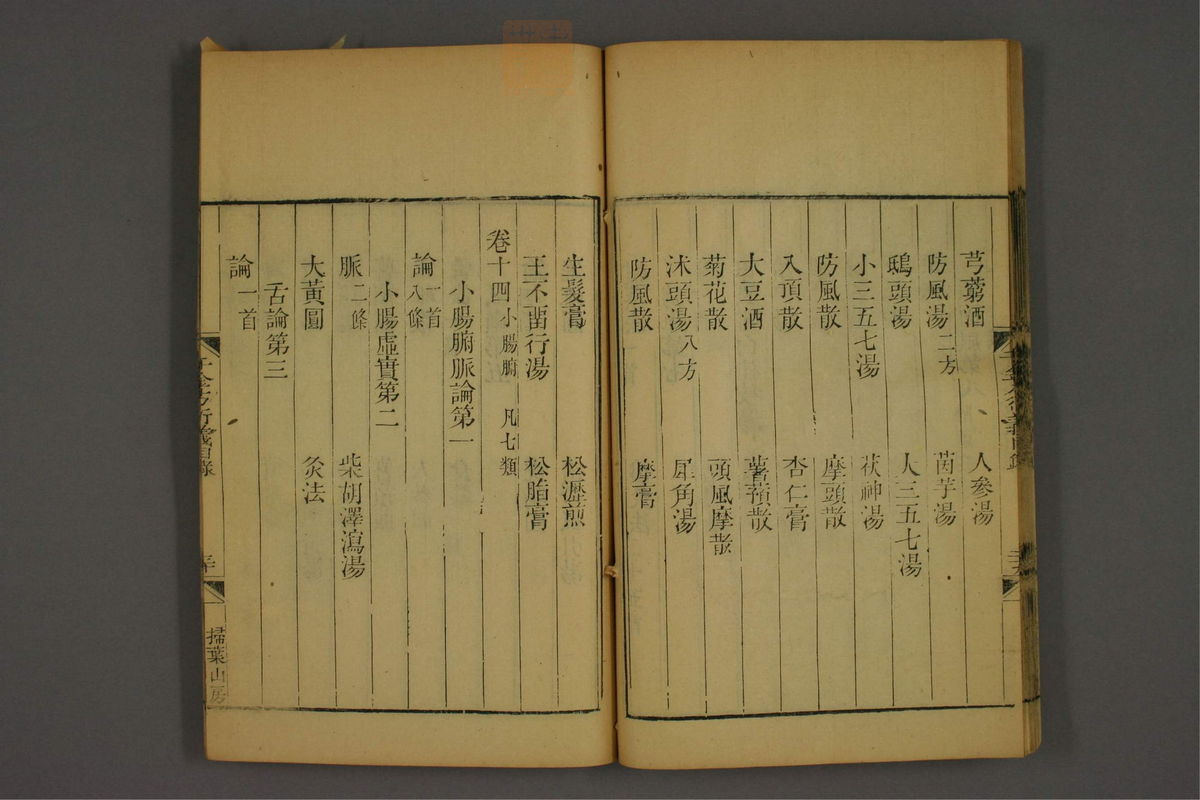 芎藭酒　人參湯
防風湯二方　茵芋湯
鴟頭湯　大三五七湯
小三五七湯　茯神湯
防風散　摩頭散
入頂散　杏仁膏
大豆酒　薯蕷散
菊花散　頭風摩散
沐頭湯八方　犀角湯
防風散　摩膏
生髮膏　松瀝煎
王不畱行湯　松脂膏
卷十四小腸腑　凡七類
小腸腑脈論第一
論一首八條
小腸虛實第二
脈二條　柴胡澤瀉湯
大黃圓　灸法
舌論第三
論一首
千金方衍義目錄
掃葉山房